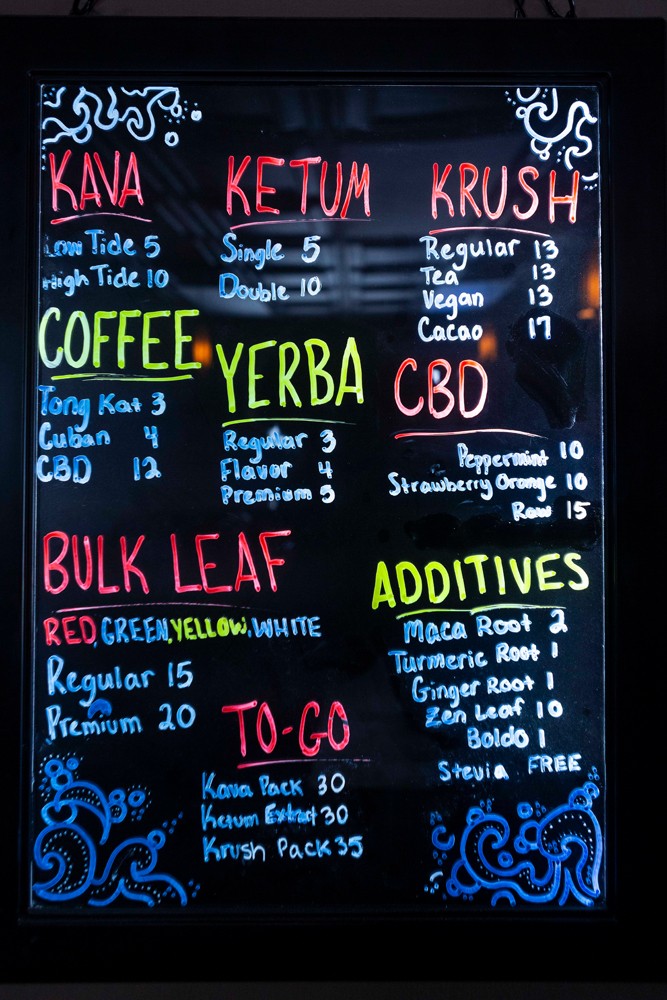 KAVA
Low Tide 5
High Tide 10
KETUM
Single 5
Double 10
KRUSH
Regular 13
Tea 13
Vegan 13
Cacao 17
COFFEE
Tong Kat 3
Cuban 4
CBD 12
YERBA
Regular 3
Flavor 4
Premium 5
CBD
Peppermint 10
Strawberry Orange 10
Raw 15
BULK LEAF
RED, GREEN, YELLOW, WHITE
Regular 15
Premium 20
ADDITIVES
Maca Root 2
Turmeric Root 1
Ginger Root 1
Zen Leaf 10
Boldo 1
Stevia FREE
TO-GO
Kava Pack 30
Ketum Extract 30
Krush Pack 35